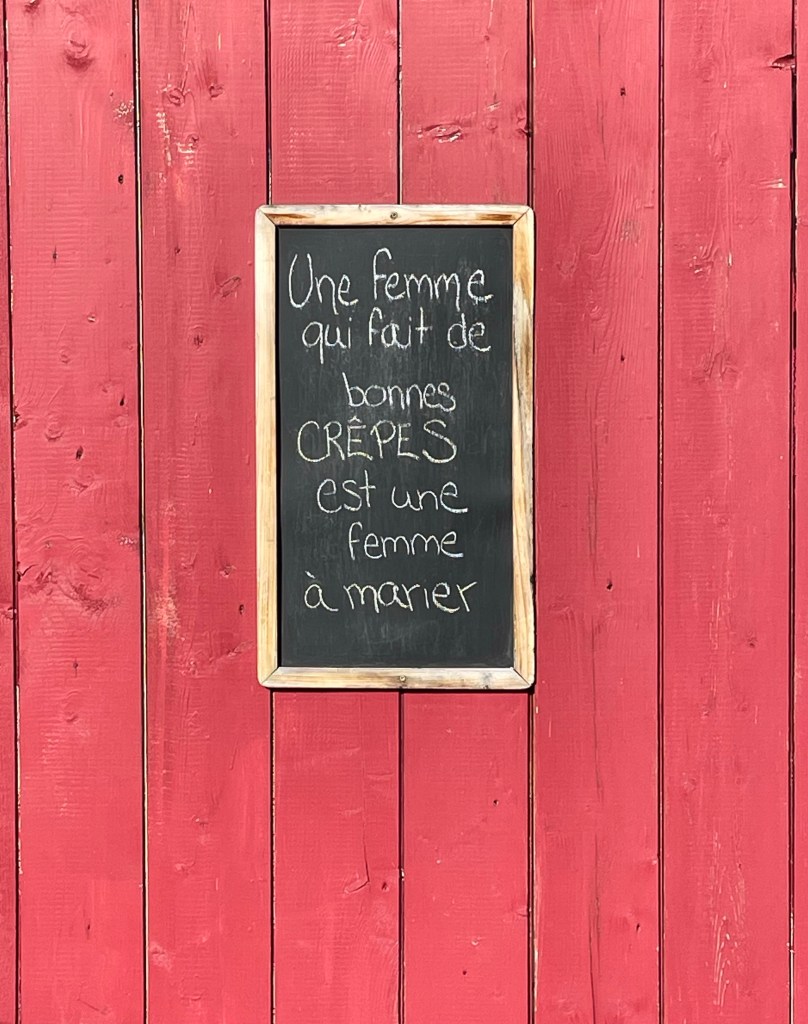 Une femme
qui fait de
bonnes
CRÊPES
est une
femme
à marier